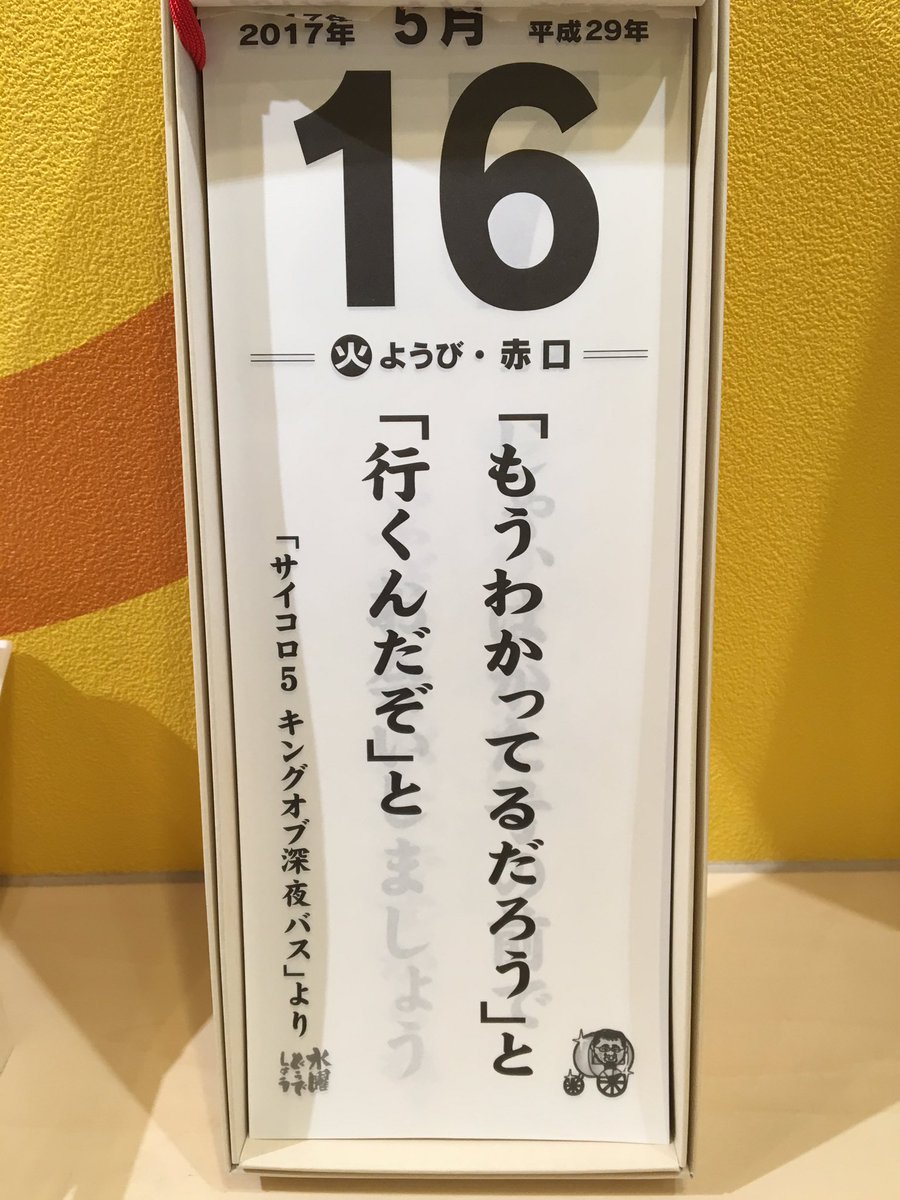 2017年 5月 平成29年
16
火ようび・赤口
「もうわかってるだろう」と
「行くんだぞ」と
「サイコロ5 キングオブ深夜バス」より
水曜
どうで
しょう